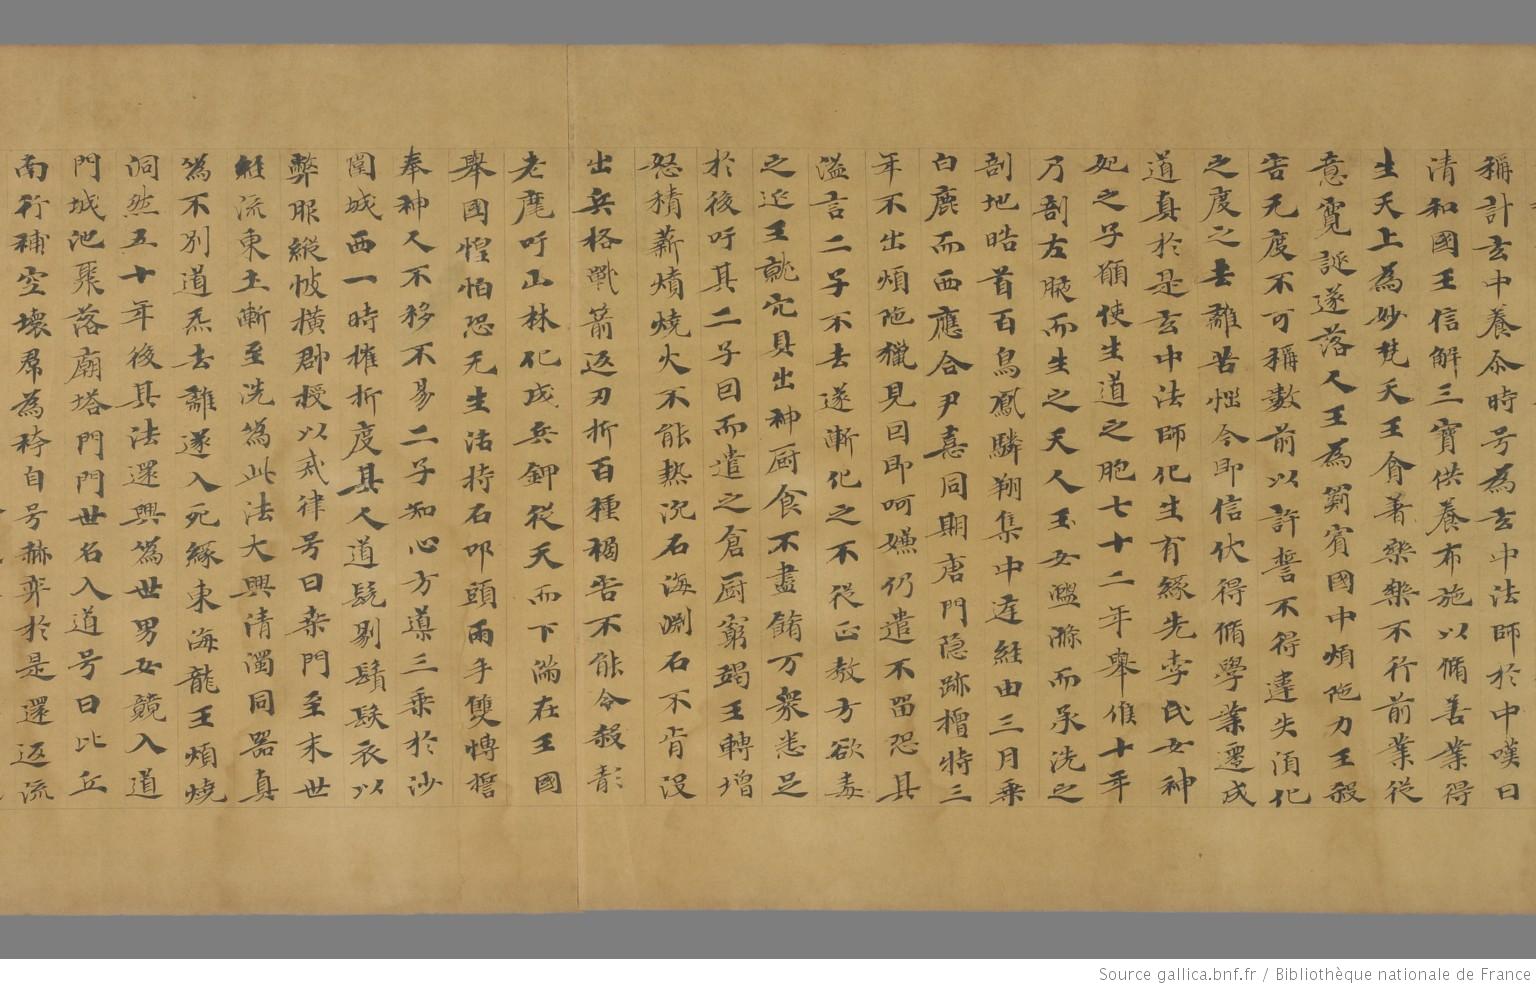 稱計玄中養尒時号為玄中法師於中嘆曰
清和國王信解三寶供養布施以脩善業得
生天上為妙梵天王貪著樂樂不行前業從
意寬誕遂落人王為罽賓國中煩陁力王煞
害无度不可稱數前以許誓不得違失湏化
之度之去離苦惱令即信伏得脩學業還成
道真於是玄中法師化生有緣先李氏女神
妃之子㣲使生道之胞七十二年舉倠十年
乃剖左腋而生之天人玉女溫滌而承洗之
剖地晧首百鳥鳳驎翔集中庭經由三月乗
白鹿而西應合尹喜同期唐門隐跡檀特三
年不出煩陁獵見因即呵嫌仍遣不留恐其
溢言二子不去遂漸化之不從正教方欲毒
之近王就穴具出神厨食不盡餚万衆悉足
於後吁其二子因而遣之倉厨窮竭王轉增
怒積薪燌燒火不能熱沉石海淵石不肯没
出兵格戰箭返刃折百種禍害不能令煞彰
老麾吁山林化成兵鉀從天而下滿在王國
舉國惶怕恐无生活持石叩頭兩手雙慱誓
奉神人不移不易二子知心方導三乗於沙
闍城西一時摧折度其人道髡剔鬚髮衣以
弊服縱帔橫郡授以戒律号曰桒門至末世
経流東土漸至洗為此法大興清濁同器真
為不別道炁去離遂入死緣東海龍王煩燒
洞然五十年後其法還興為世男女競入道
門城池聚落廟塔門門世名入道号曰比丘
南行補空壞帬為袴自号赫弈於是還返流
Source gallica.bnf.fr / Bibliothèque nationale de France